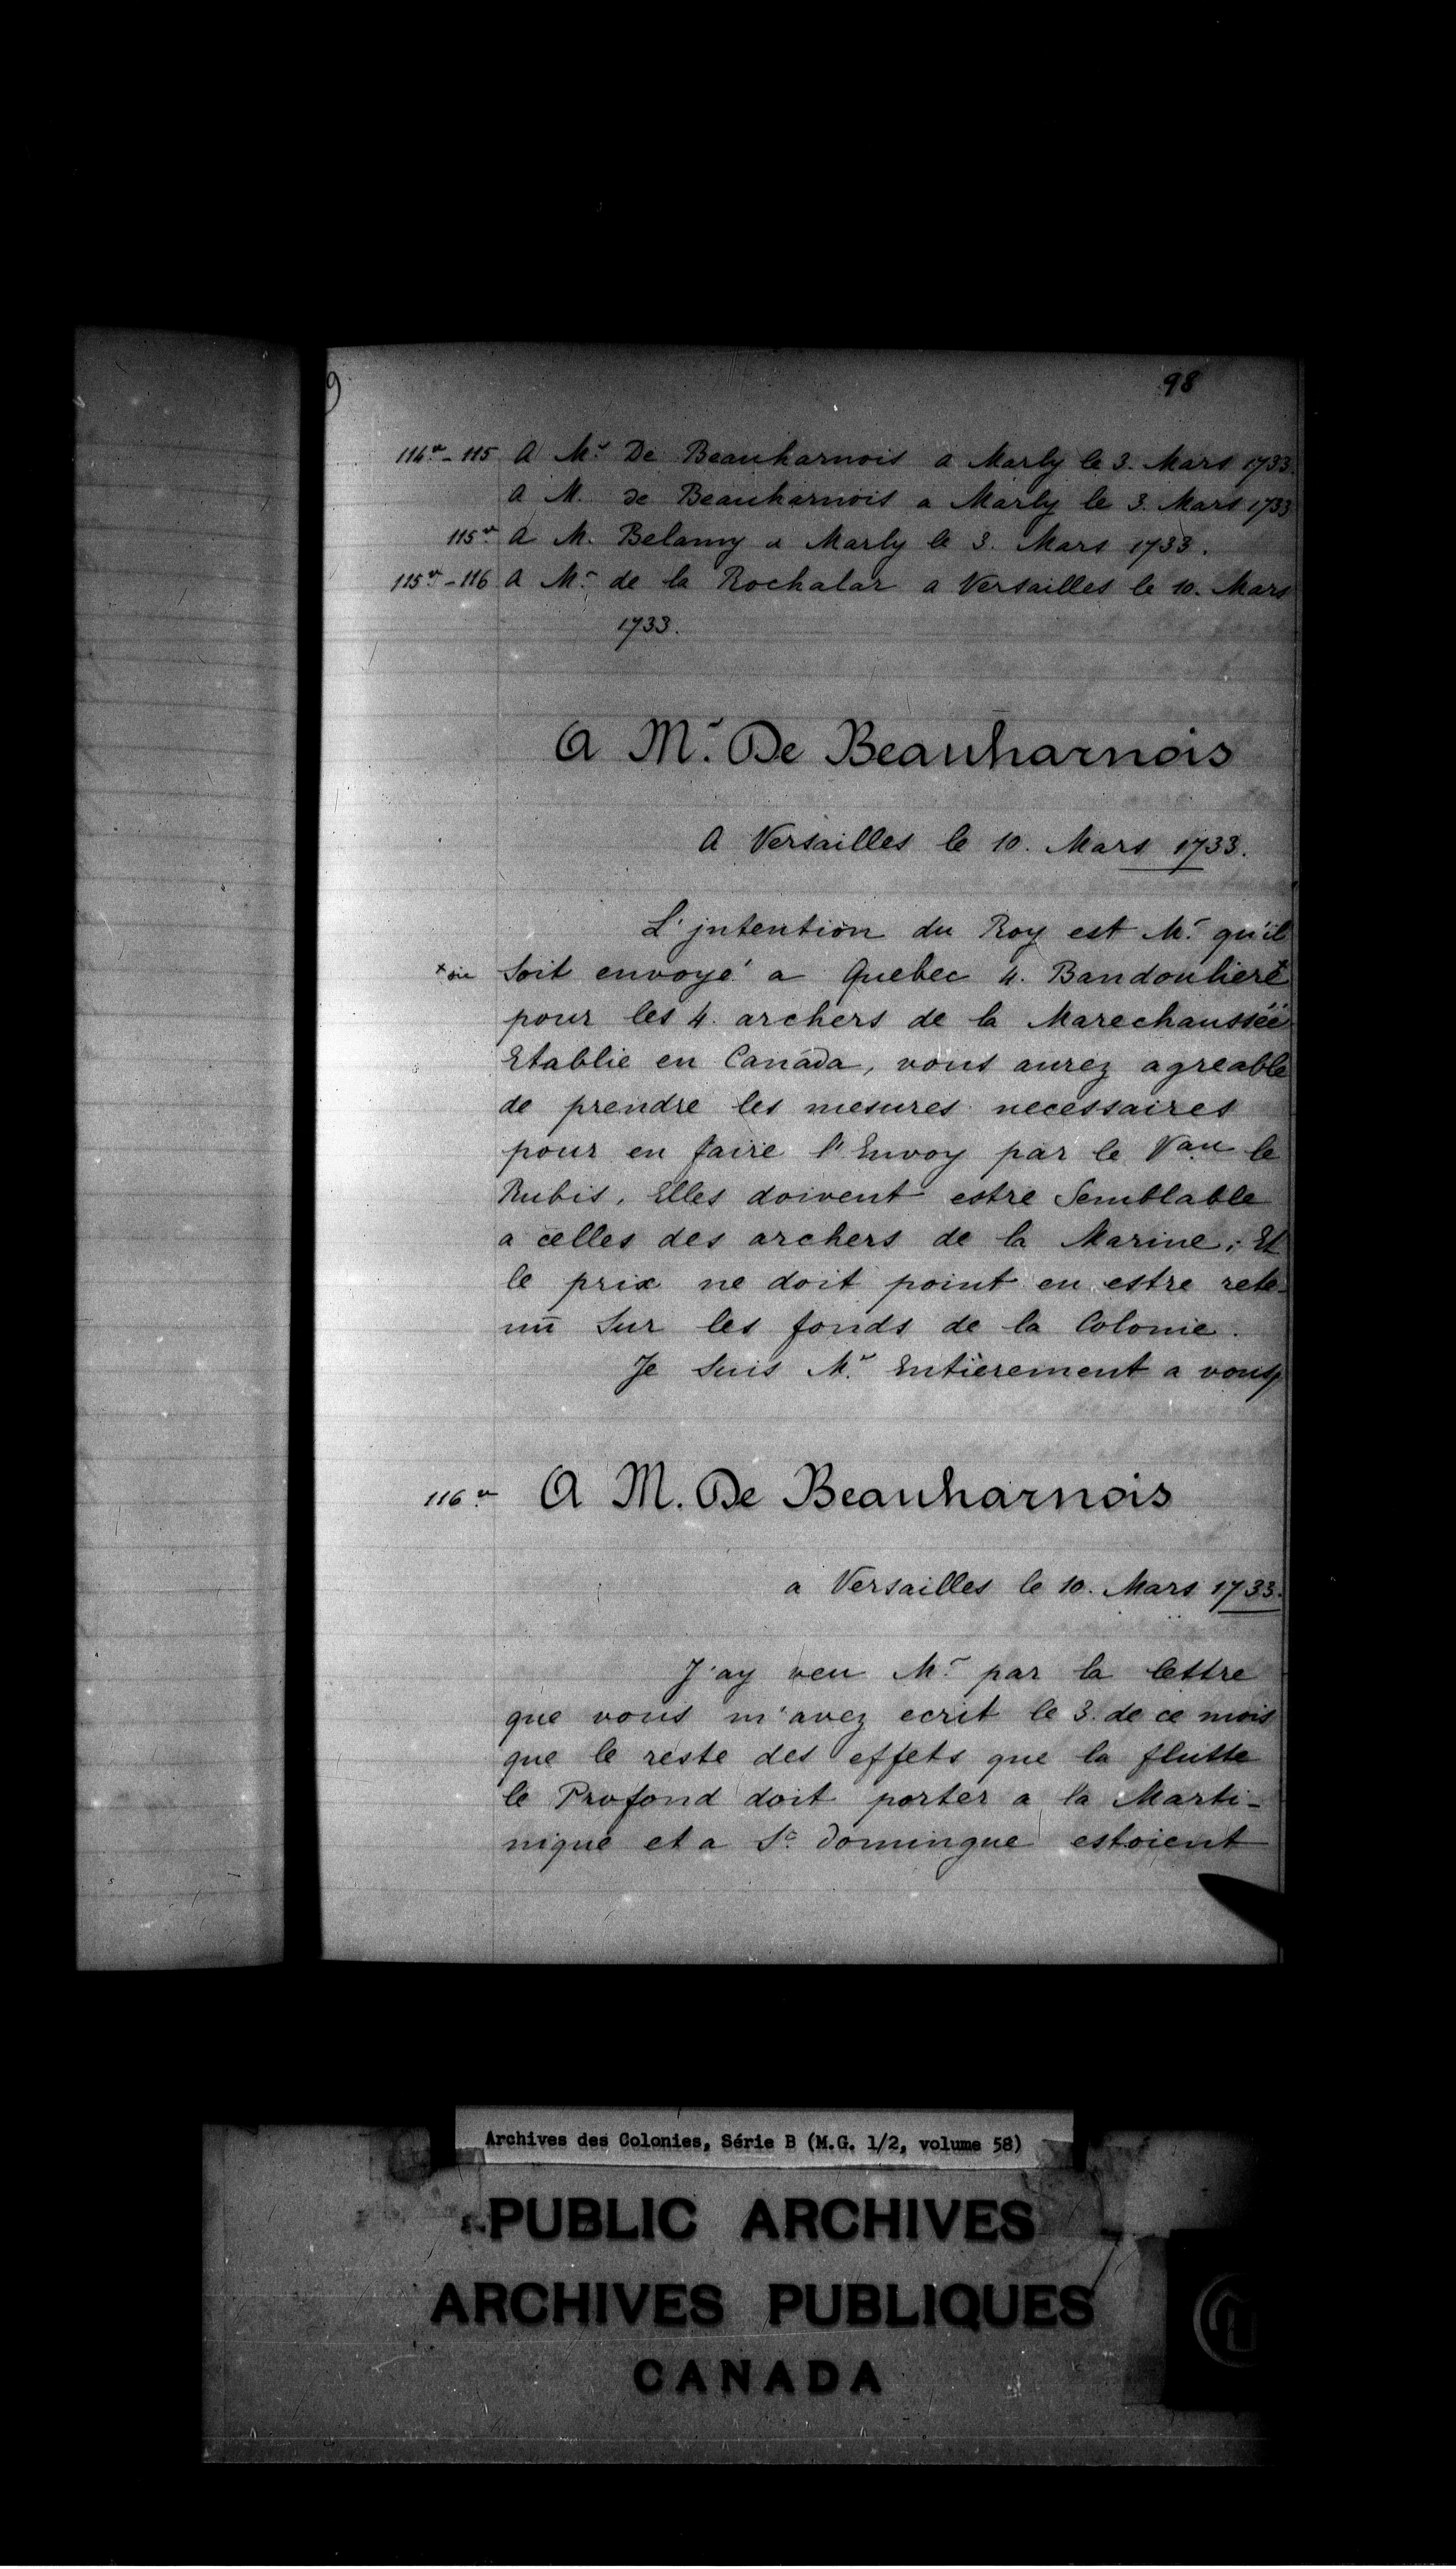 98
116vo - 115 A Mr De Beauharnois a Marly le 3. Mars 1733
A M. de Beauharnois a Marly le 3. Mars 1733
115vo A M. Belamy a Marly le 3. Mars 1733.
115vo - 116 A Mr de la Rochalar a Versailles le 10. Mars
1733.
A Mr. De Beauharnois
A Versailles le 10. Mars 1733.
L'jntention du Roy est Mr qu'il
+ sic soit envoyé a Quebec 4. Bandouliere+
pour les 4. archers de la Marechaussée
Etablie en Canada, vous aurez agreable
de prendre les mesures necessaires
pour en faire l'Envoy par le Vau le
Rubis, Elles doivent estre Semblable
a celles des archers de la Marine; Et
le prix ne doit point en estre rete-
nû sur les fonds de la Colonie.
Je suis Mr. Entièrement a vous,
116vo A M. De Beauharnois
a Versailles le 10. Mars 1733.
J'ay veu Mr par la lettre
que vous m'avez ecrit le 3. de ce mois
que le reste des effets que la flutte
le Profond doit porter a la Marti-
nique et a St. Domingue estoient
Archives des Colonies, Série B (M.G. 1/2, volume 58)
PUBLIC ARCHIVES
ARCHIVES PUBLIQUES
CANADA